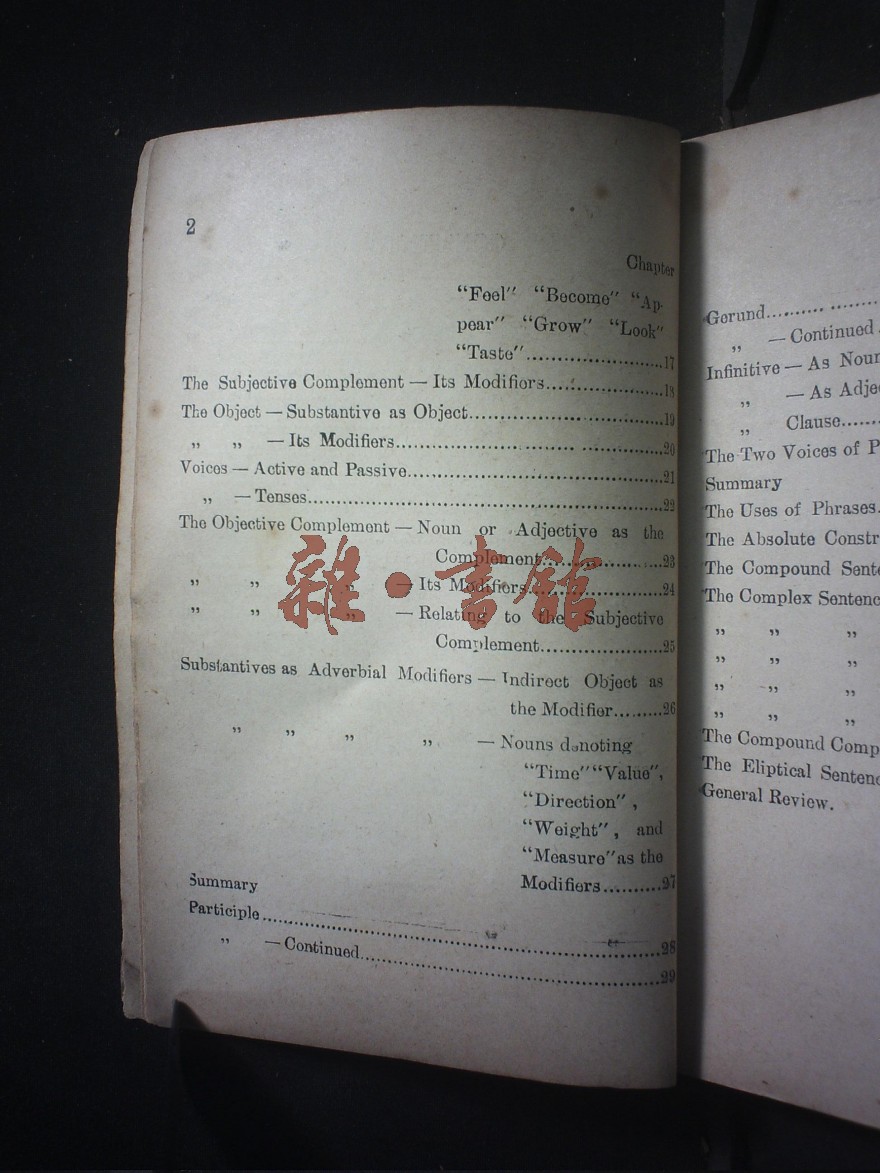 2
Chapter
“Feel” “Become” “Ap-
pear” “Grow” “Look”
“Taste”......................17
The Subjective Complement — Its Modifiers......................18
The Object — Substantive as Object......................19
„ „ — Its Modifiers......................20
Voices — Active and Passive......................21
„ — Tenses......................22
The Objective Complement — Noun or Adjective as the
Complement......................23
„ „ „ — Its Modifiers......................24
„ „ „ — Relating to the Subjective
Complement......................25
Substantives as Adverbial Modifiers — Indirect Object as
the Modifier.........26
„ „ „ „ — Nouns denoting
“Time” “Value”,
“Direction”,
“Weight”, and
“Measure” as the
Modifiers..........27
Summary
Participle......................28
„ — Continued......................29
雜·書館
Gerund......................
„ — Continued.
Infinitive — As Noun
„ — As Adje
„ Clause.......
The Two Voices of P
Summary
The Uses of Phrases.
The Absolute Constr
The Compound Sente
The Complex Sentenc
„ „ „
„ „ „
„ „ „
„ „ „
The Compound Comp
The Eliptical Sentenc
General Review.